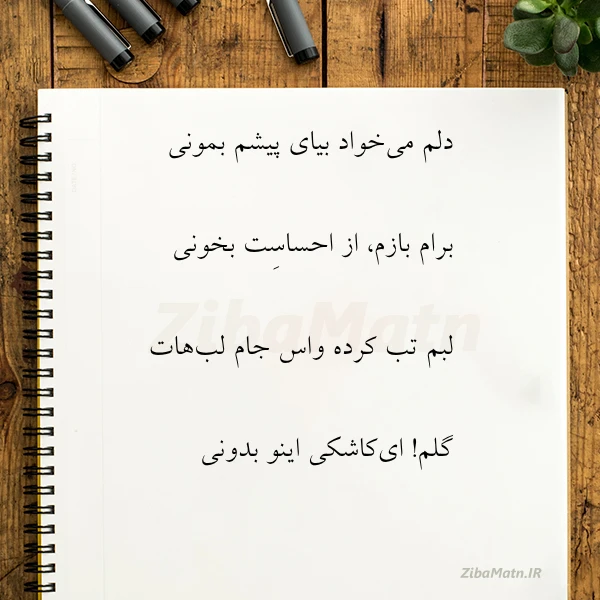 دلم می‌خواد بیای پیشم بمونی
برام بازم، از احساسِت بخونی
لبم تب کرده واس جام لب‌هات
گلم! ای‌کاشکی اینو بدونی
ZibaMatn
ZibaMatn.IR